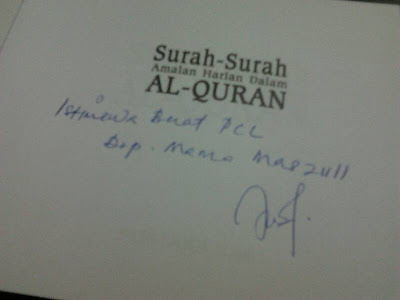 Surah-Surah
Amalan Harian Dalam
AL-QURAN
Istimewa Buat PCL
Drp. Mama Maszull